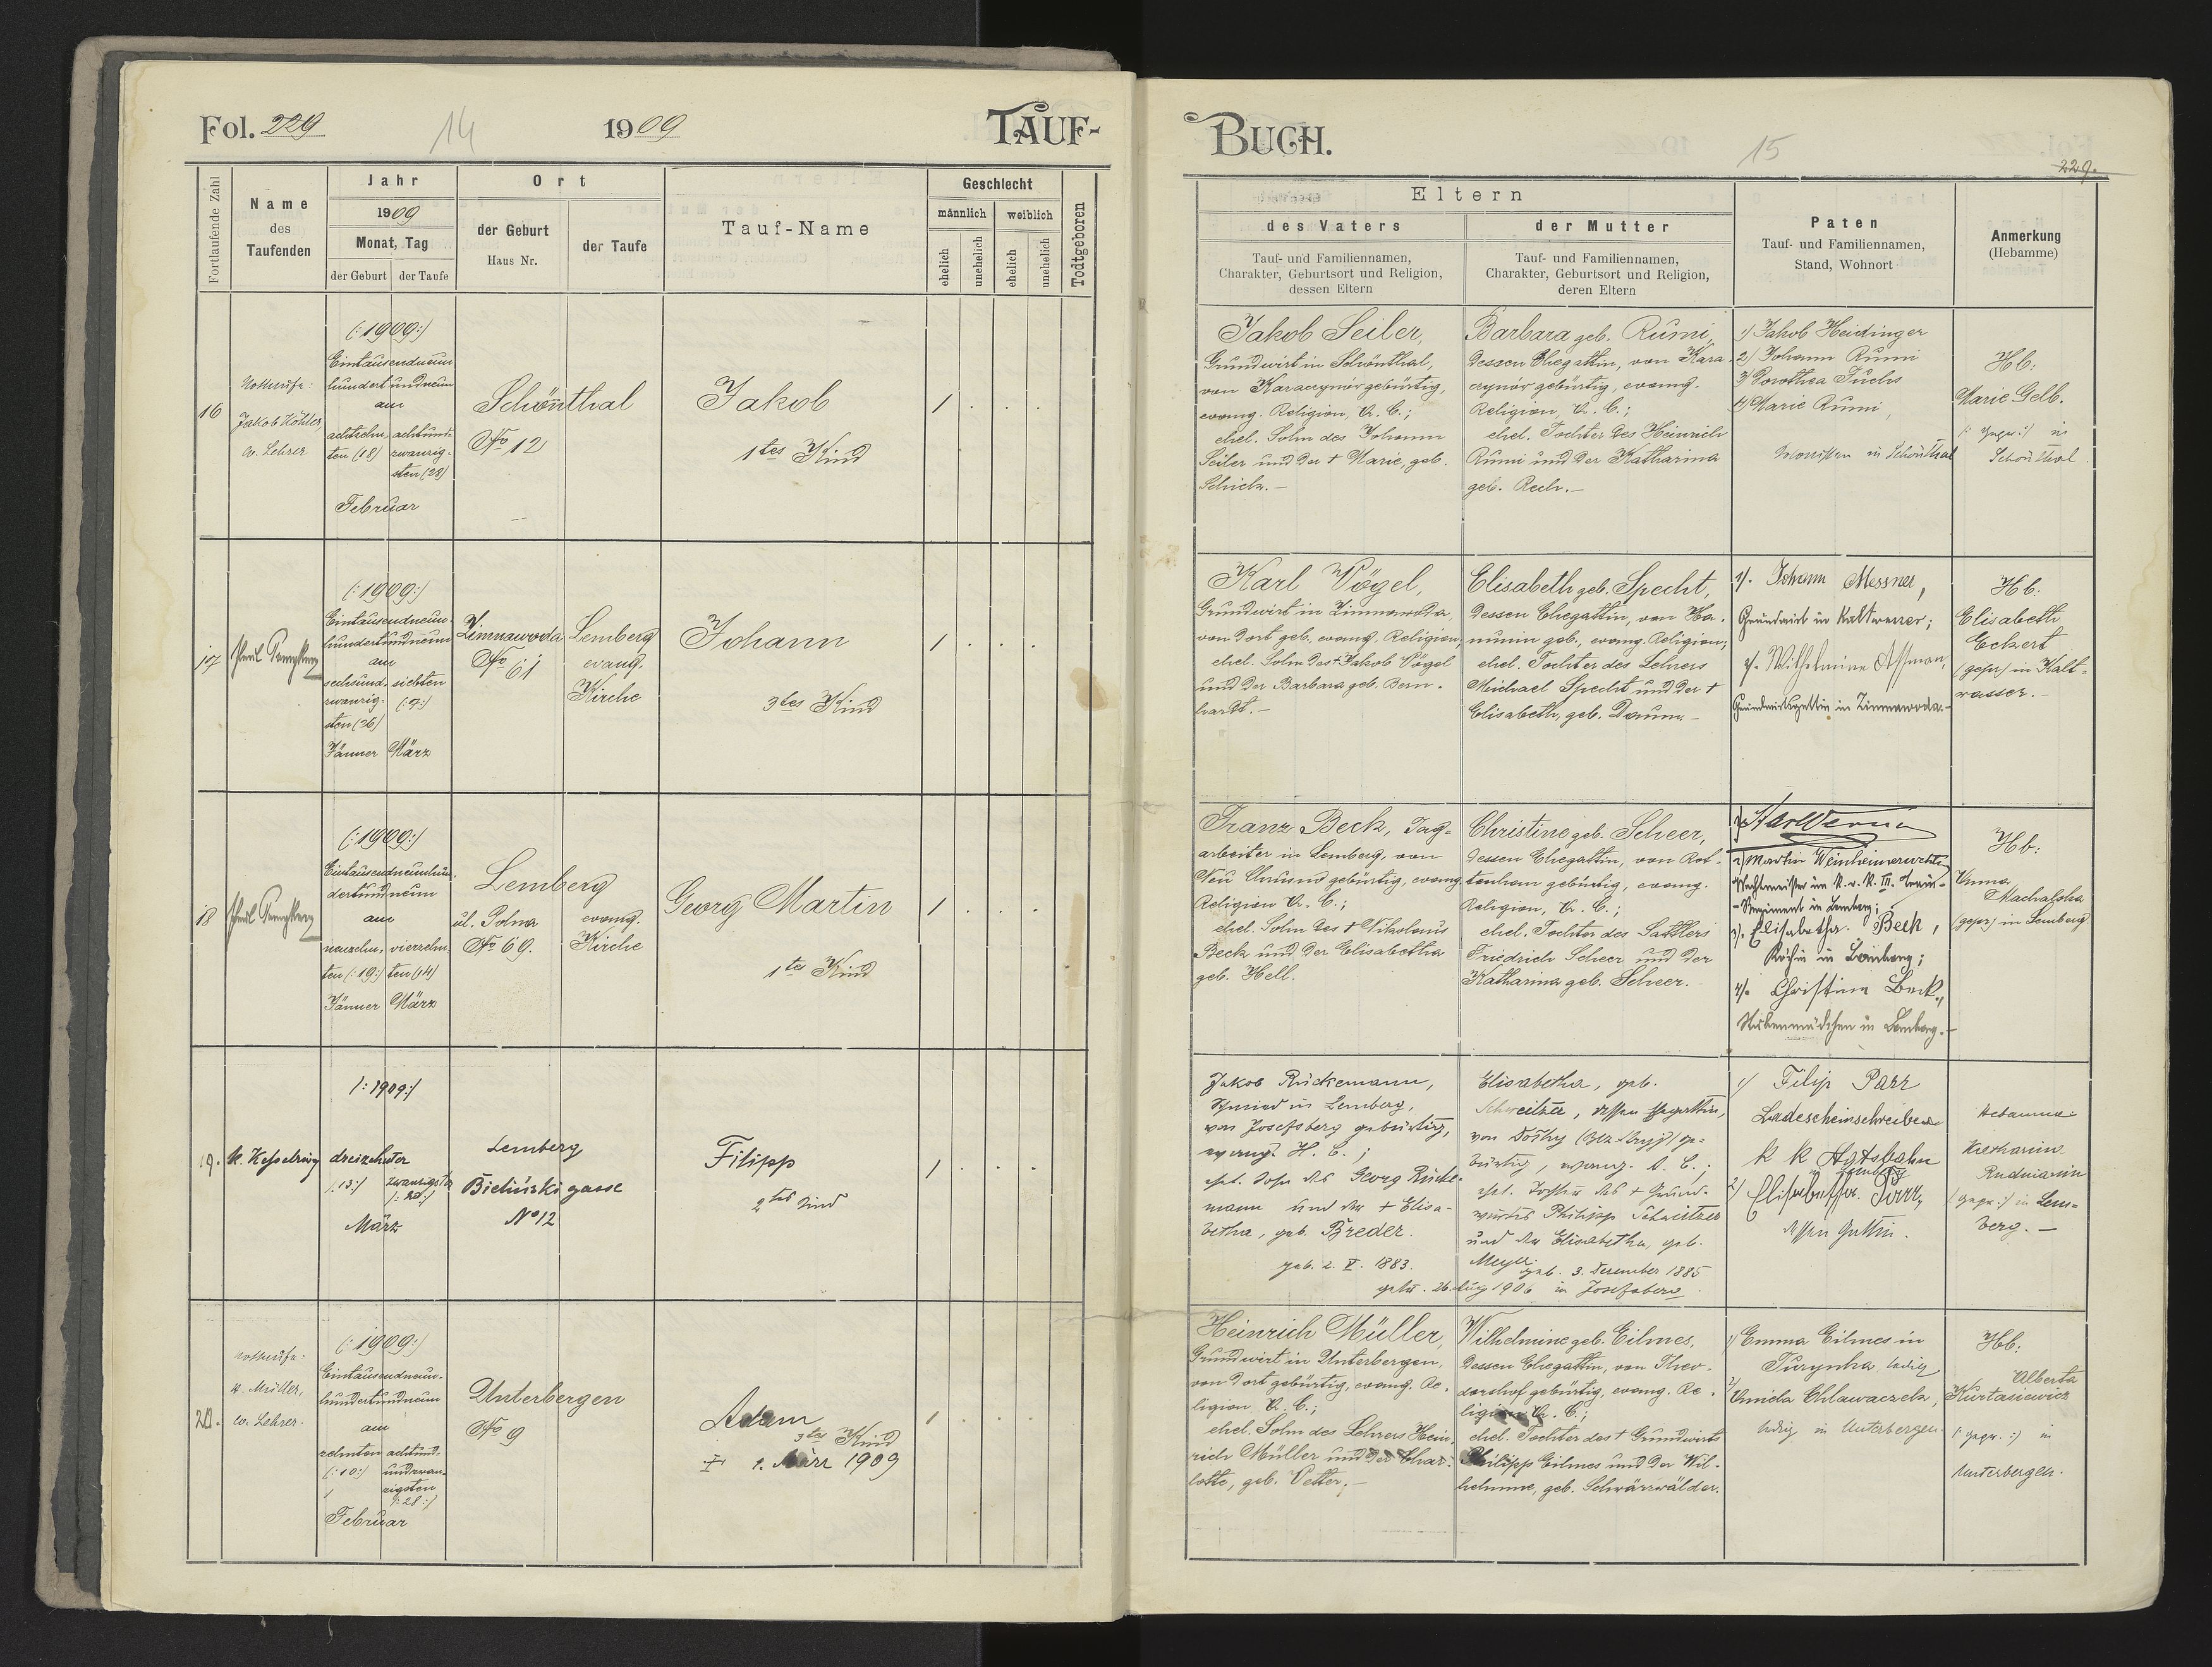 Fol. 229
14
1909
TAUF-
Fortlaufende Zahl
Name
des
Taufenden
Jahr
1909
Monat, Tag
der Geburt
der Taufe
Ort
der Geburt
Haus Nr.
der Taufe
Tauf-Name
Geschlecht
männlich
weiblich
ehelich
unehelich
ehelich
unehelich
Todtgeboren
16
Nothtaufe:
Jakob Köhler,
ev. Lehrer
(:1909:)
Eintausendneun
hundertundneun
am
achtzehn-
ten (18)
achtund-
zwanzig-
sten (28)
Februar
Schönthal
No 12
Jakob
1tes Kind
1 . . .
17
(:1909:)
Eintausendneun-
hundertundneun
am
sechsund-
zwanzig-
sten (26)
Jänner
siebten
(:7:)
März
Zimnawoda
No 61
Lemberg
evang.
Kirche
Johann
3tes Kind
1 . . .
18
(:1909:)
Eintausendneunhun-
dertundneun
am
neunzehn-
ten (:19:)
Jänner
vierzehn-
ten (14)
März
Lemberg
ul. Polna
No 69.
evang.
Kirche
Georg Martin
1tes Kind
1 . . .
19.
K. Kesselring
(:1909:)
dreizehnter
(:13:)
März
Lemberg
Bielinskigasse
No 12
Filipp
2tes Kind
1 . . .
20.
Nothtaufe:
H. Müller,
ev. Lehrer.
(:1909:)
Eintausendneun-
hundertundneun
am
zehnten
(:10:)
achtund-
undzwan-
zigsten
(:28:)
Februar
Unterbergen
No 9
Adam
3tes Kind
1. März 1909
1 . . .
BUCH.
15
229.
Eltern
des Vaters
Tauf- und Familiennamen,
Charakter, Geburtsort und Religion,
dessen Eltern
der Mutter
Tauf- und Familiennamen,
Charakter, Geburtsort und Religion,
deren Eltern
Paten
Tauf- und Familiennamen,
Stand, Wohnort
Anmerkung
(Hebamme)
Jakob Seiler,
Grundwirt in Schönthal,
von Karaczynów gebürtig,
evang. Religion, A. C.;
ehel. Sohn des Johann
Seiler und der † Marie, geb.
Schick.—
Barbara geb. Rumi,
dessen Ehegattin, von Kara-
czynów gebürtig, evang.
Religion, A. C.;
ehel. Tochter des Heinrich
Rumi und der Katharina
geb. Rech.—
1) Jakob Heidinger
2) Johann Rumi
3) Dorothea Fuchs
4) Marie Rumi
Kolonisten in Schönthal
Hb:
Marie Gelb.
(: gepr:) in
Schönthal.
Karl Vögel,
Grundwirt in Zimnawoda,
von dort geb., evang. Religion,
ehel. Sohn des † Jakob Vögel
und der Barbara geb. Bern-
hardt.—
Elisabeth geb. Specht,
dessen Ehegattin, von Ha-
numin geb., evang. Religion;
ehel. Tochter des Lehrers
Michael Specht und der †
Elisabeth, geb. Daum.—
1/. Johann Messner,
Grundwirt in Kaltwasser;
2/. Wilhelmine Assman
Grundwirtsgattin in Zimnawoda.—
Hb:
Elisabeth
Eckert
(gepr) in Kalt-
wasser.—
Franz Beck, Tag-
arbeiter in Lemberg, von
Neu Chrusno gebürtig, evang.
Religion A. C.;
ehel. Sohn des † Nikolaus
Beck und der Elisabetha
geb. Hell.
Christine geb. Scheer,
dessen Ehegattin, von Rot-
tenhan gebürtig, evang.
Religion, A. C.;
ehel. Tochter des Sattlers
Friedrich Scheer und der
Katharina geb. Scheer.
2) Martin
Wachtmeister im K. u. K. III.
-Regiment in Lemberg;
3). Elisabetha Beck,
Köchin in Lemberg;
4/. Christina Beck,
Stubenmädchen in Lemberg.—
Hb:
Anna
Machalska
(gepr) in Lemberg
Jakob Rückemann,
Schmied in Lemberg,
von Josefsberg gebürtig,
evang. H. C.;
ehel. Sohn des Georg Rücke-
mann und der † Elisa-
betha, geb. Breder.
geb. 2. X. 1883.
Elisabetha, geb.
Schweitzer, dessen Ehegattin,
von
bürtig, evang. A. C.;
ehel. Tochter des † Grund-
wirtes Philipp Schweitzer
und der Elisabetha, geb.
Meyer.
geb. 3. Dezember 1885
getr. 26 Aug 1906 in Josefsberg
1) Filip Parr
Ladescheinschreiber
k k
2) Elisabetha Parr,
dessen Gattin.
Hebamme
Katharina
Rudnianin
(gepr:) in Lem-
berg.—
Heinrich Müller,
Grundwirt in Unterbergen,
von dort gebürtig, evang. Re-
ligion A. C.;
ehel. Sohn des Lehrers Hein-
rich Müller und der Char-
lotte, geb. Vetter.—
Wilhelmine geb. Eilmes,
dessen Ehegattin, von Theo-
dorshof gebürtig, evang. Re-
ligion A. C.;
ehel. Tochter des † Grundwirts
Philipp Eilmes und der Wil-
helmine, geb. Schwärzwälder.
1) Emma Eilmes in
Turynka ledig
2) Aniela Chlawaczek,
ledig in Unterbergen
Hb:
Alberta
Kurtasiewicz
(: gepr. :) in
Unterbergen.